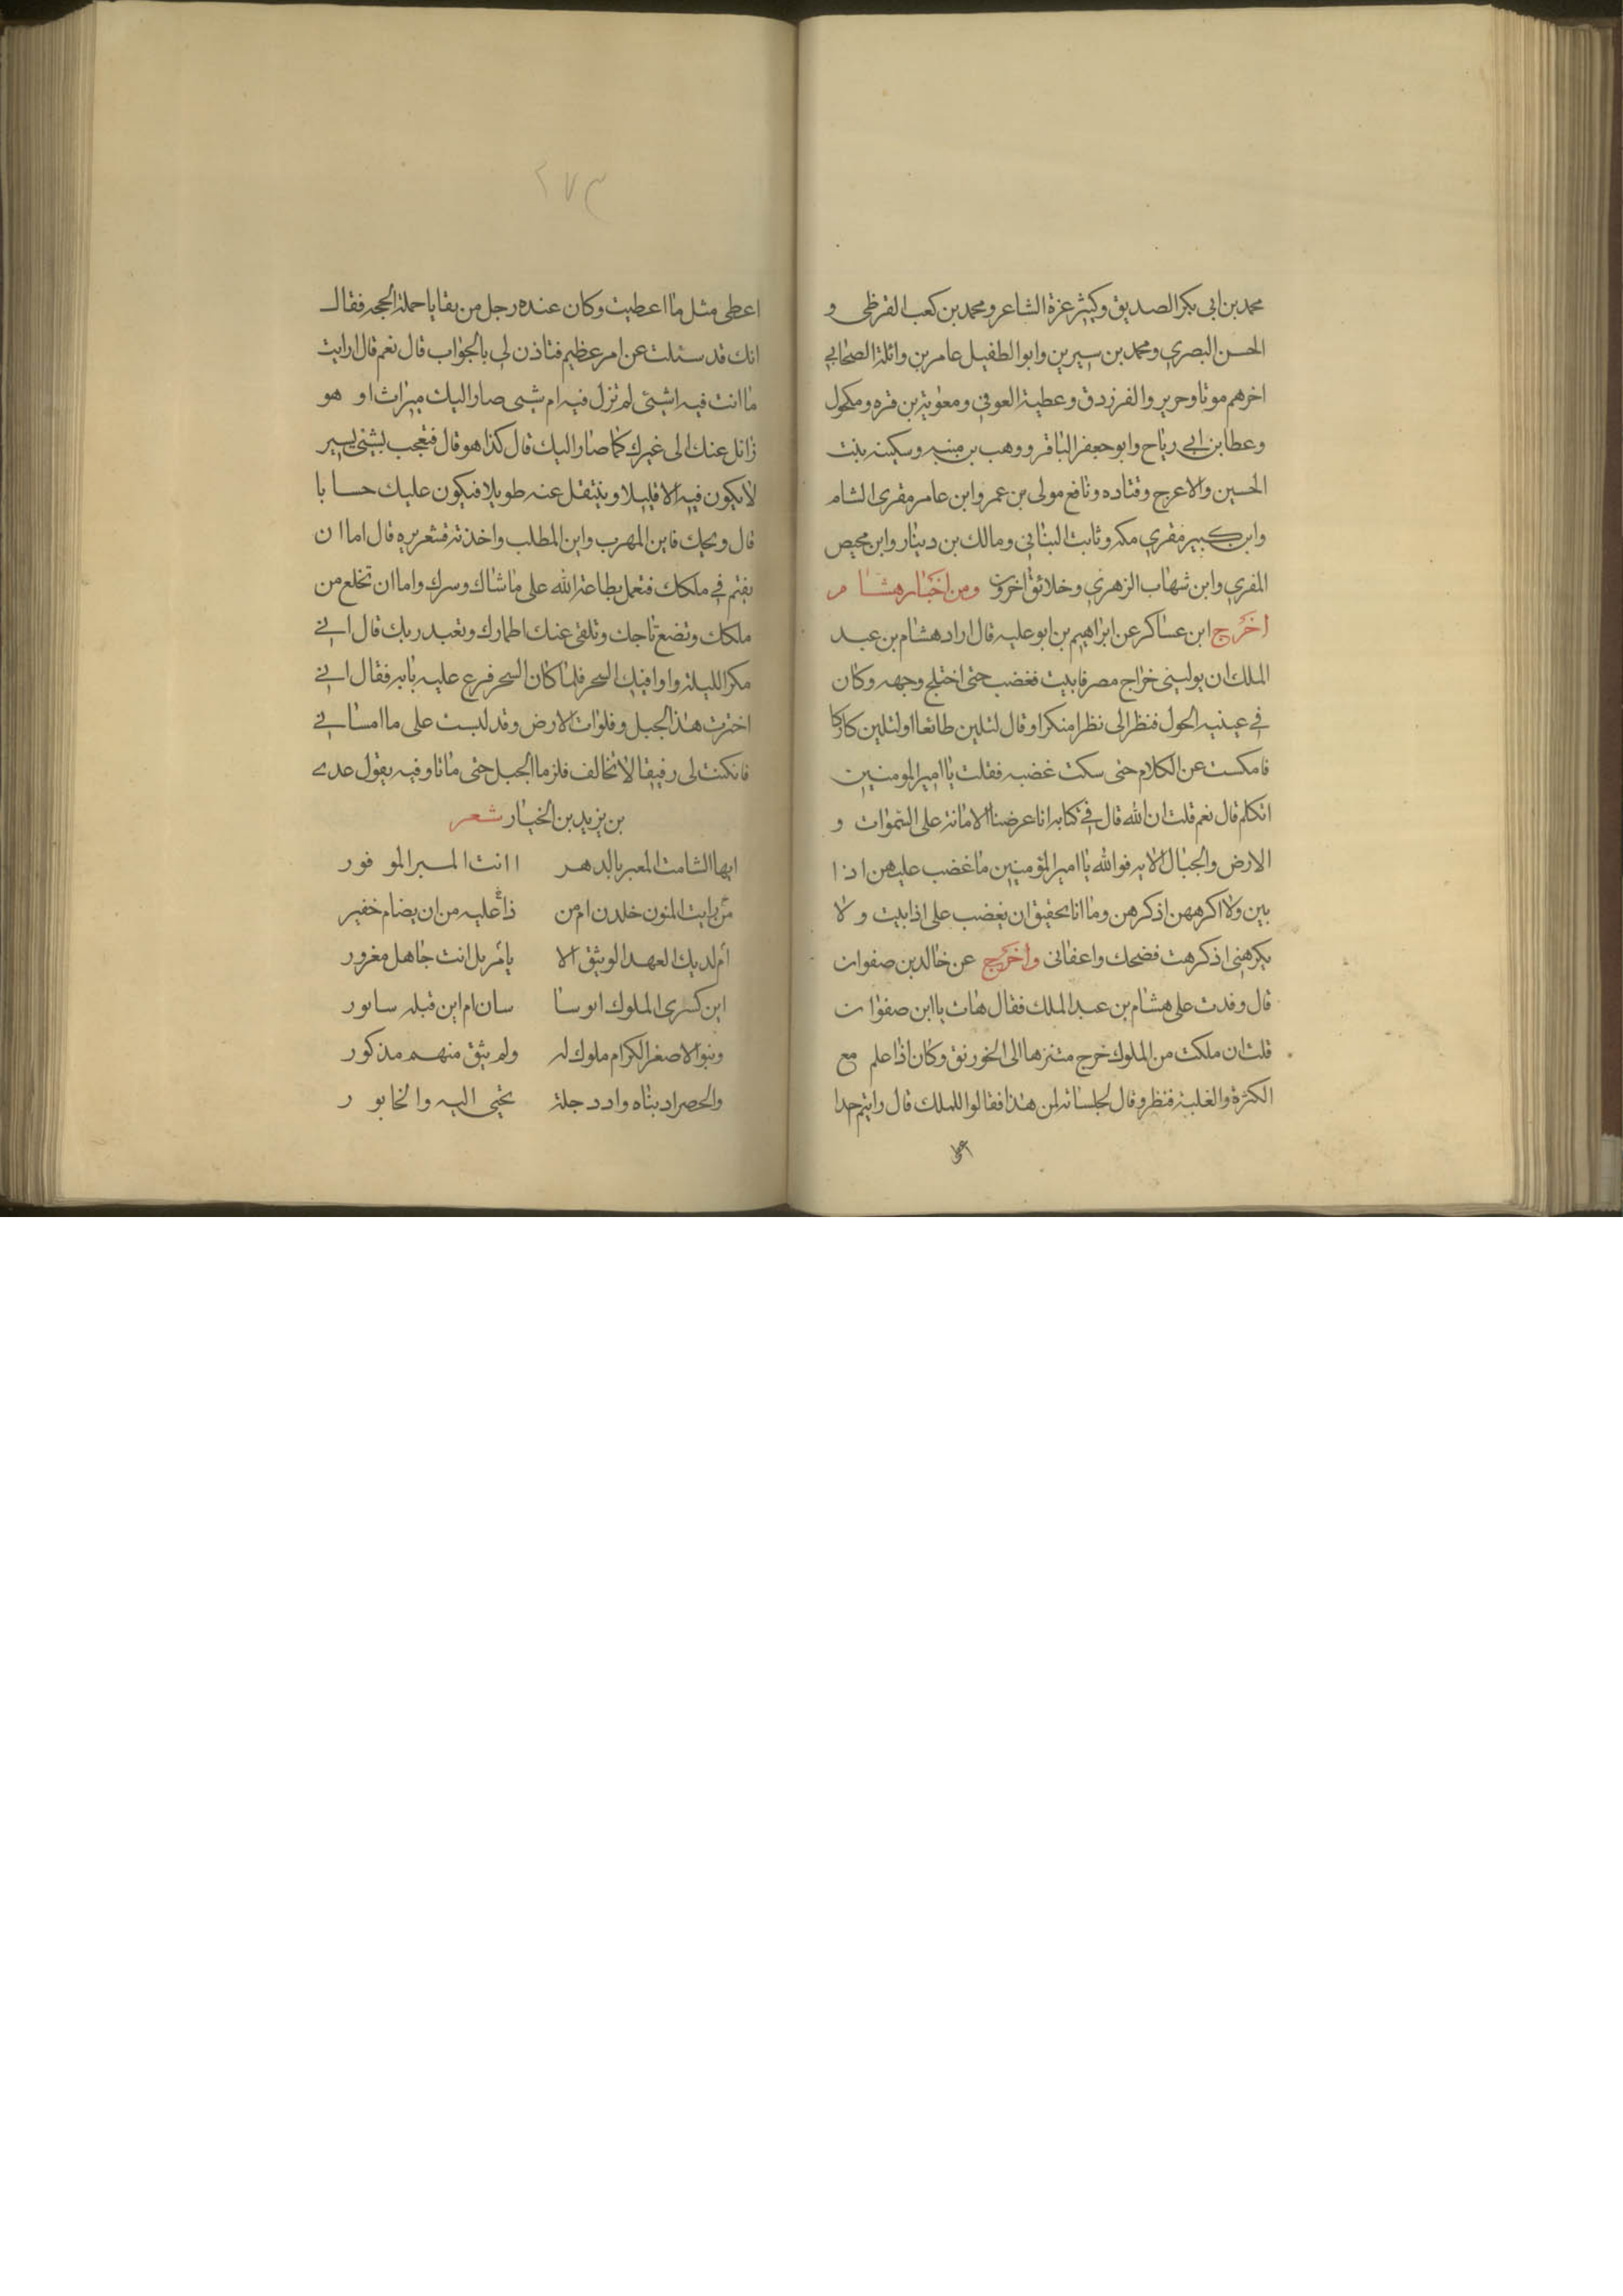 محمد بن ابي بكر الصديق وكثير عزة الشاعر ومحمد بن كعب القرظى و
الحسن البصري ومحمد بن سيرين وابوالطفيل عامر بن واثلة الصحابي
اخرهم موتا وجرير والفرزدق وعطية العوفي ومعوية بن قره ومكحول
وعطا بن ابي رباح وابو جعفر الباقر ووهب بن منبه وسكينه بنت
الحسين والاعرج وقتاده ونافع مولى بن عمر وابن عامر مقرى الشام
وابن كبير مقري مكه وثابت البناني ومالك بن دينار وابن محيص
المقري وابن شهاب الزهري وخلائق اخرون ومن اخبار هشام
اخرج ابن عساكر عن ابراهيم بن ابو عليه قال اراد هشام بن عبد
الملك ان يولينى خراج مصر فابيت فغضب حتى اختلج وجهه وكان
في عينيه الحول فنظر الى نظرا منكرا وقال لتلين طائعا اولتلين كارها
فامكست عن الكلام حتى سكت غضبه فقلت يا امير المومنين
اتكلم قال نعم قلت ان الله قال في كتابه انا عرضنا الامانة على السموات و
الارض والجبال الايه فوالله يا امير المؤمنين ما غضب عليهن اذا
بين ولا اكرههن اذ كرهن وما انا بحقيق ان يغضب على اذا بيت ولا
يكرهنى اذ كرهت فضحك واعفانى واخرج عن خالد بن صفوان
قال وفدت على هشام بن عبد الملك فقال هات يا ابن صفوان
قلت ان ملكت من الملوك خرج متنزها الى الخورنق وكان اذا علم مع
الكثرة والغلبة فنظر وقال لجلسائه لمن هذا فقالوا للملك قال رايتم حدا
اعطى
٢٧٣
اعطى مثل ما اعطيت وكان عنده رجل من بقايا حملة الحجه فقال
انك قد سئلت عن امر عظيم فتاذن لي بالجواب قال نعم قال ارايت
ما انت فيه اشئى لم تزل فيه ام شيى صار اليك ميراث او هو
زائل عنك الى غيرك كما صار اليك قال كذا هو قال فتعجب بشئى يسير
لا يكون فيه الا قليلا وينتقل عنه طويلا فيكون عليك حسابا
قال ويحك فاين المهرب واين المطلب واخذته قشعريره قال اما ان
يقيم في ملكك فتعمل بطاعة الله على ماشاك وسرك واما ان تخلع من
ملكك وتضع تاجك وتلقى عنك اطمارك وتعبد ربك قال انى
مكر الليلة واوافيك السحر فلما كان السحر فرع عليه بابه فقال انى
اخترت هذا الجبل وفلوات الارض وقد لبست على ما امسانى
فانكنت لى رفيقا لا تخالف فلزما الجبل حتى ماتا وفيه يقول عدى
بن يزيد بن الخبار شعر
ايها الشامت المعير بالدهر اانت المبر الموفور
من رايت المنون خلدن ام من ذا عليه من ان يضام خفير
ام لديك العهد الوثيق الا يام بل انت جاهل مغرور
اين كسرى الملوك ابو سا سان ام اين قبله سابور
وبنوا الاصغر الكرام ملوك له ولم يثق منهم مذكور
والحصر اد بناه وادد جلة يجبى اليه والخابور